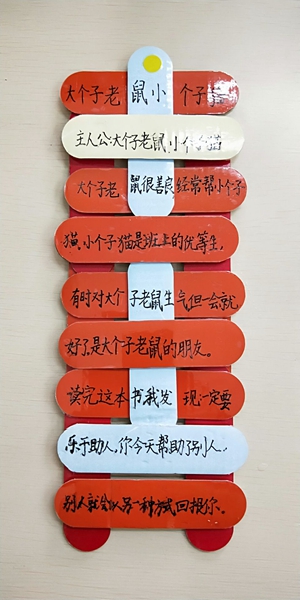 大个子老鼠小个子猫
主人公:大个子老鼠,小个子猫
大个子老鼠很善良经常帮小个子
猫,小个子猫是班上的优等生,
有时对大个子老鼠生气但一会就
好了,是大个子老鼠的朋友。
读完这本书,我发现一定要
乐于助人,你今天帮助了别人,
别人就会以另一种 回报你。